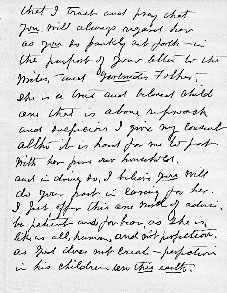 that I trust and pray that
you will always regard her
as you so faintly set forth - in
the purport of your letter to the
writer, and Gertrudes Father.
She is a true and beloved child
one that is above reproach
and suspicion I give my consent
altho it is hard for me to part
with her from our household.
and in doing so, I believe you will
do your part in caring for her.
I just offer this one word of advice.
be patient and forbear as she is
like us all, human, and not perfection.
as God does not Creat - perfection
in his children on this earth.